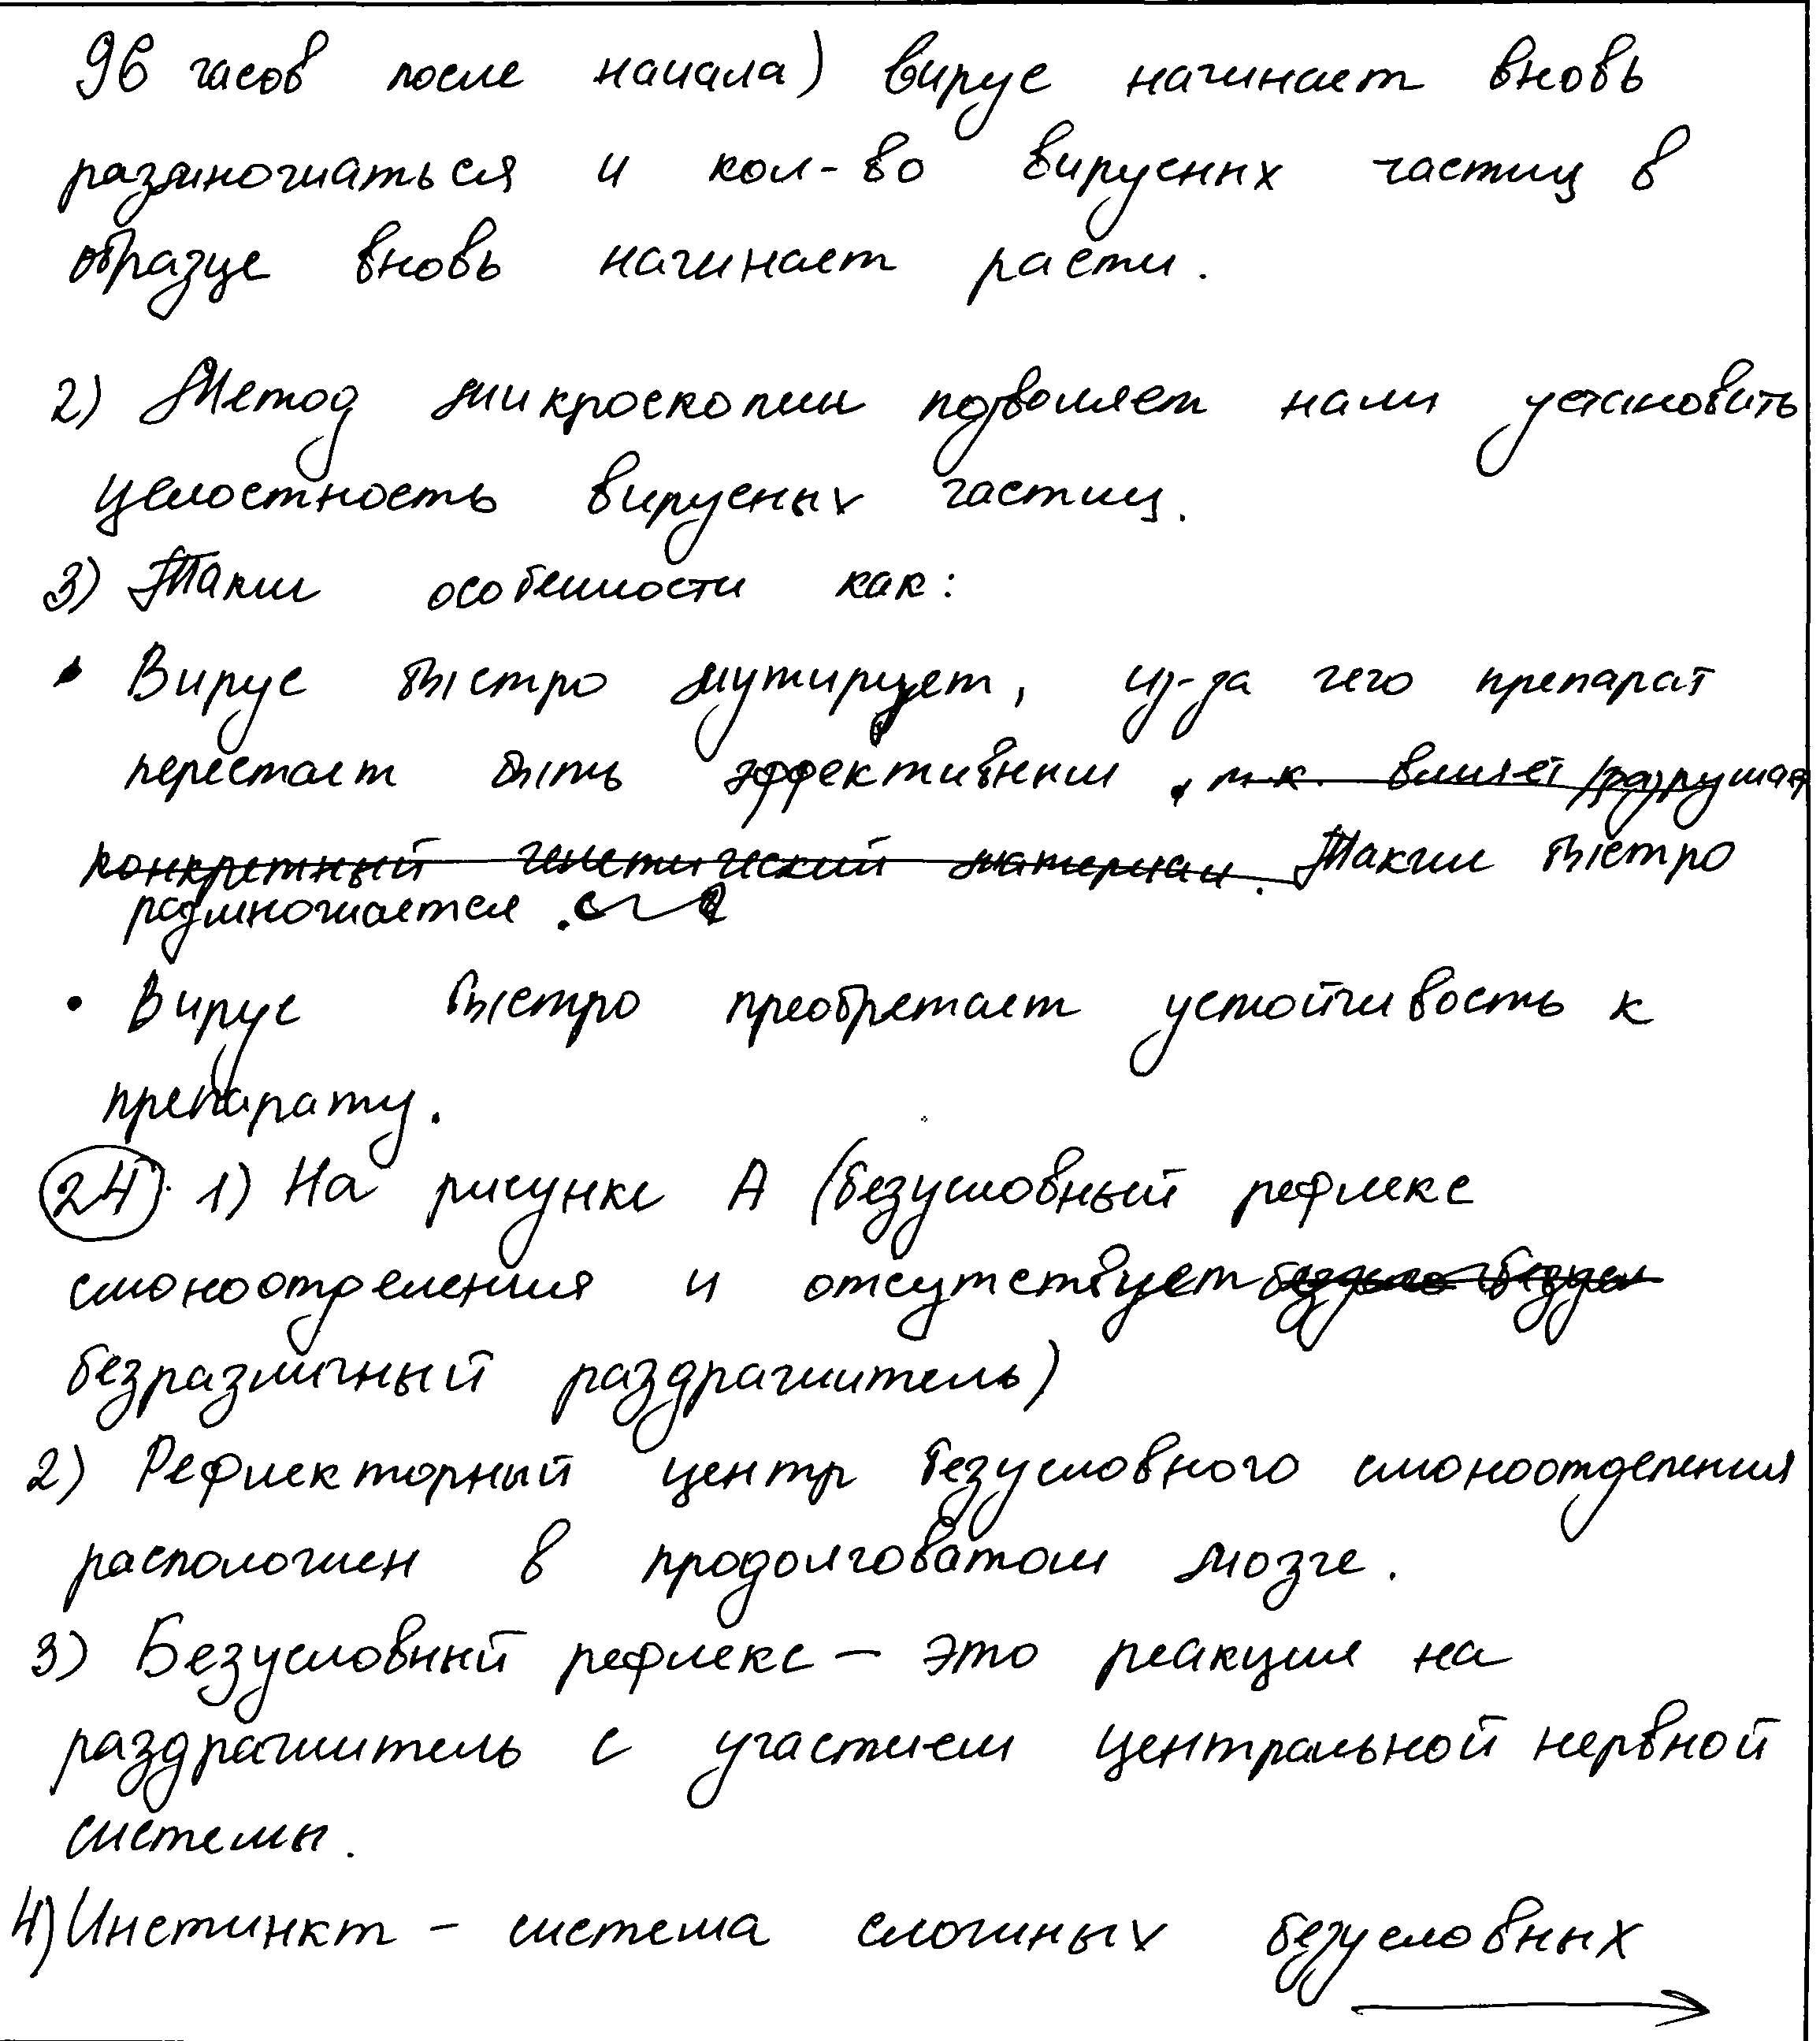 96 часов после начала) вирус начинает вновь
размножаться и кол-во вирусных частиц в
образце вновь начинает расти.
2) Метод микроскопии позволяет нам установить
целостность вирусных частиц.
3) Такие особенности как:
• Вирус быстро мутирует, из-за чего препарат
перестает быть эффективным , т.к. влияет/разрушает
конкретный генетический материал. Также быстро
размножается.
• Вирус быстро преобретает устойчивость к
препарату.
24. 1) На рисунке А (безусловный рефлекс
слюноотделения и отсутствует
безразличный раздражитель)
2) Рефлекторный центр безусловного слюноотделения
расположен в продолговатом мозге.
3) Безусловный рефлекс – это реакция на
раздражитель с участием центральной нервной
системы.
4) Инстинкт – система сложных безусловных